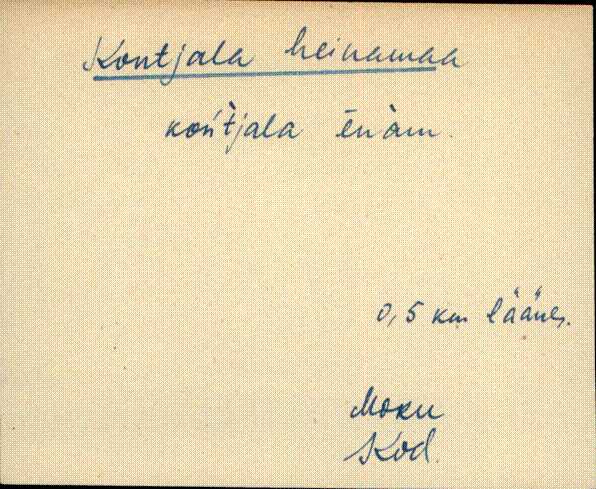 Kontjala heinamaa
koǹ̀tjala ēǹàm.
0,5 km läänes.
Moku
Kod.